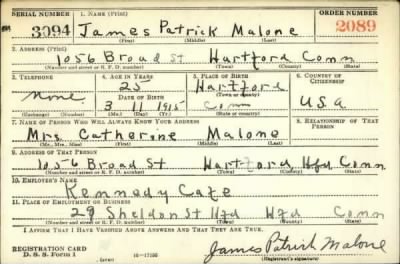 SERIAL NUMBER 1. NAME (Print) ORDER NUMBER
3094 James Patrick Malone 2089
(First) (Middle) (Last)
2. ADDRESS (Print)
1056 Broad St Hartford Conn
(Number and street or R. F. D. number) (Town) (County) (State)
3. TELEPHONE 4. AGE IN YEARS 5. PLACE OF BIRTH 6. COUNTRY OF CITIZENSHIP
None 25 Hartford
(Town or county)
DATE OF BIRTH
3 11 1915 Conn USA
(Mo.) (Day) (Yr.) (State or country)
7. NAME OF PERSON WHO WILL ALWAYS KNOW YOUR ADDRESS 8. RELATIONSHIP OF THAT PERSON
Mrs Catherine Malone
(Mr., Mrs., Miss) (First) (Middle) (Last)
9. ADDRESS OF THAT PERSON
1056 Broad St Hartford, Hfd Conn
(Number and street or R. F. D. number) (Town) (County) (State)
10. EMPLOYER'S NAME
Kennedy Cafe
11. PLACE OF EMPLOYMENT OR BUSINESS
29 Sheldon St Hfd Hfd Conn
(Number and street or R. F. D. number) (Town) (County) (State)
I AFFIRM THAT I HAVE VERIFIED ABOVE ANSWERS AND THAT THEY ARE TRUE.
REGISTRATION CARD
D. S. S. Form 1 (over) James Patrick Malone
(Registrant's signature)